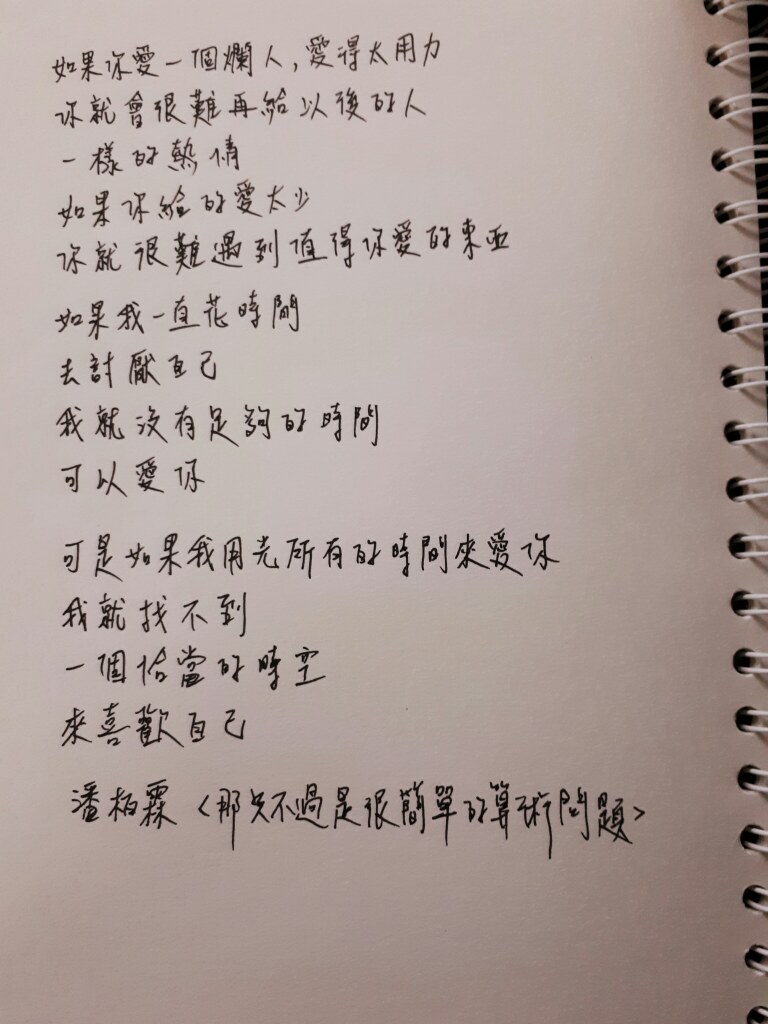 如果你愛一個爛人,愛得太用力
你就會很難再給以後的人
一樣的熱情
如果你給的愛太少
你就很難遇到值得你愛的東西
如果我一直花時間
去討厭自己
我就沒有足夠的時間
可以愛你
可是如果我用光所有的時間來愛你
我就找不到
一個恰當的時空
來喜歡自己
潘柏霖〈那只不過是很簡單的算術問題〉